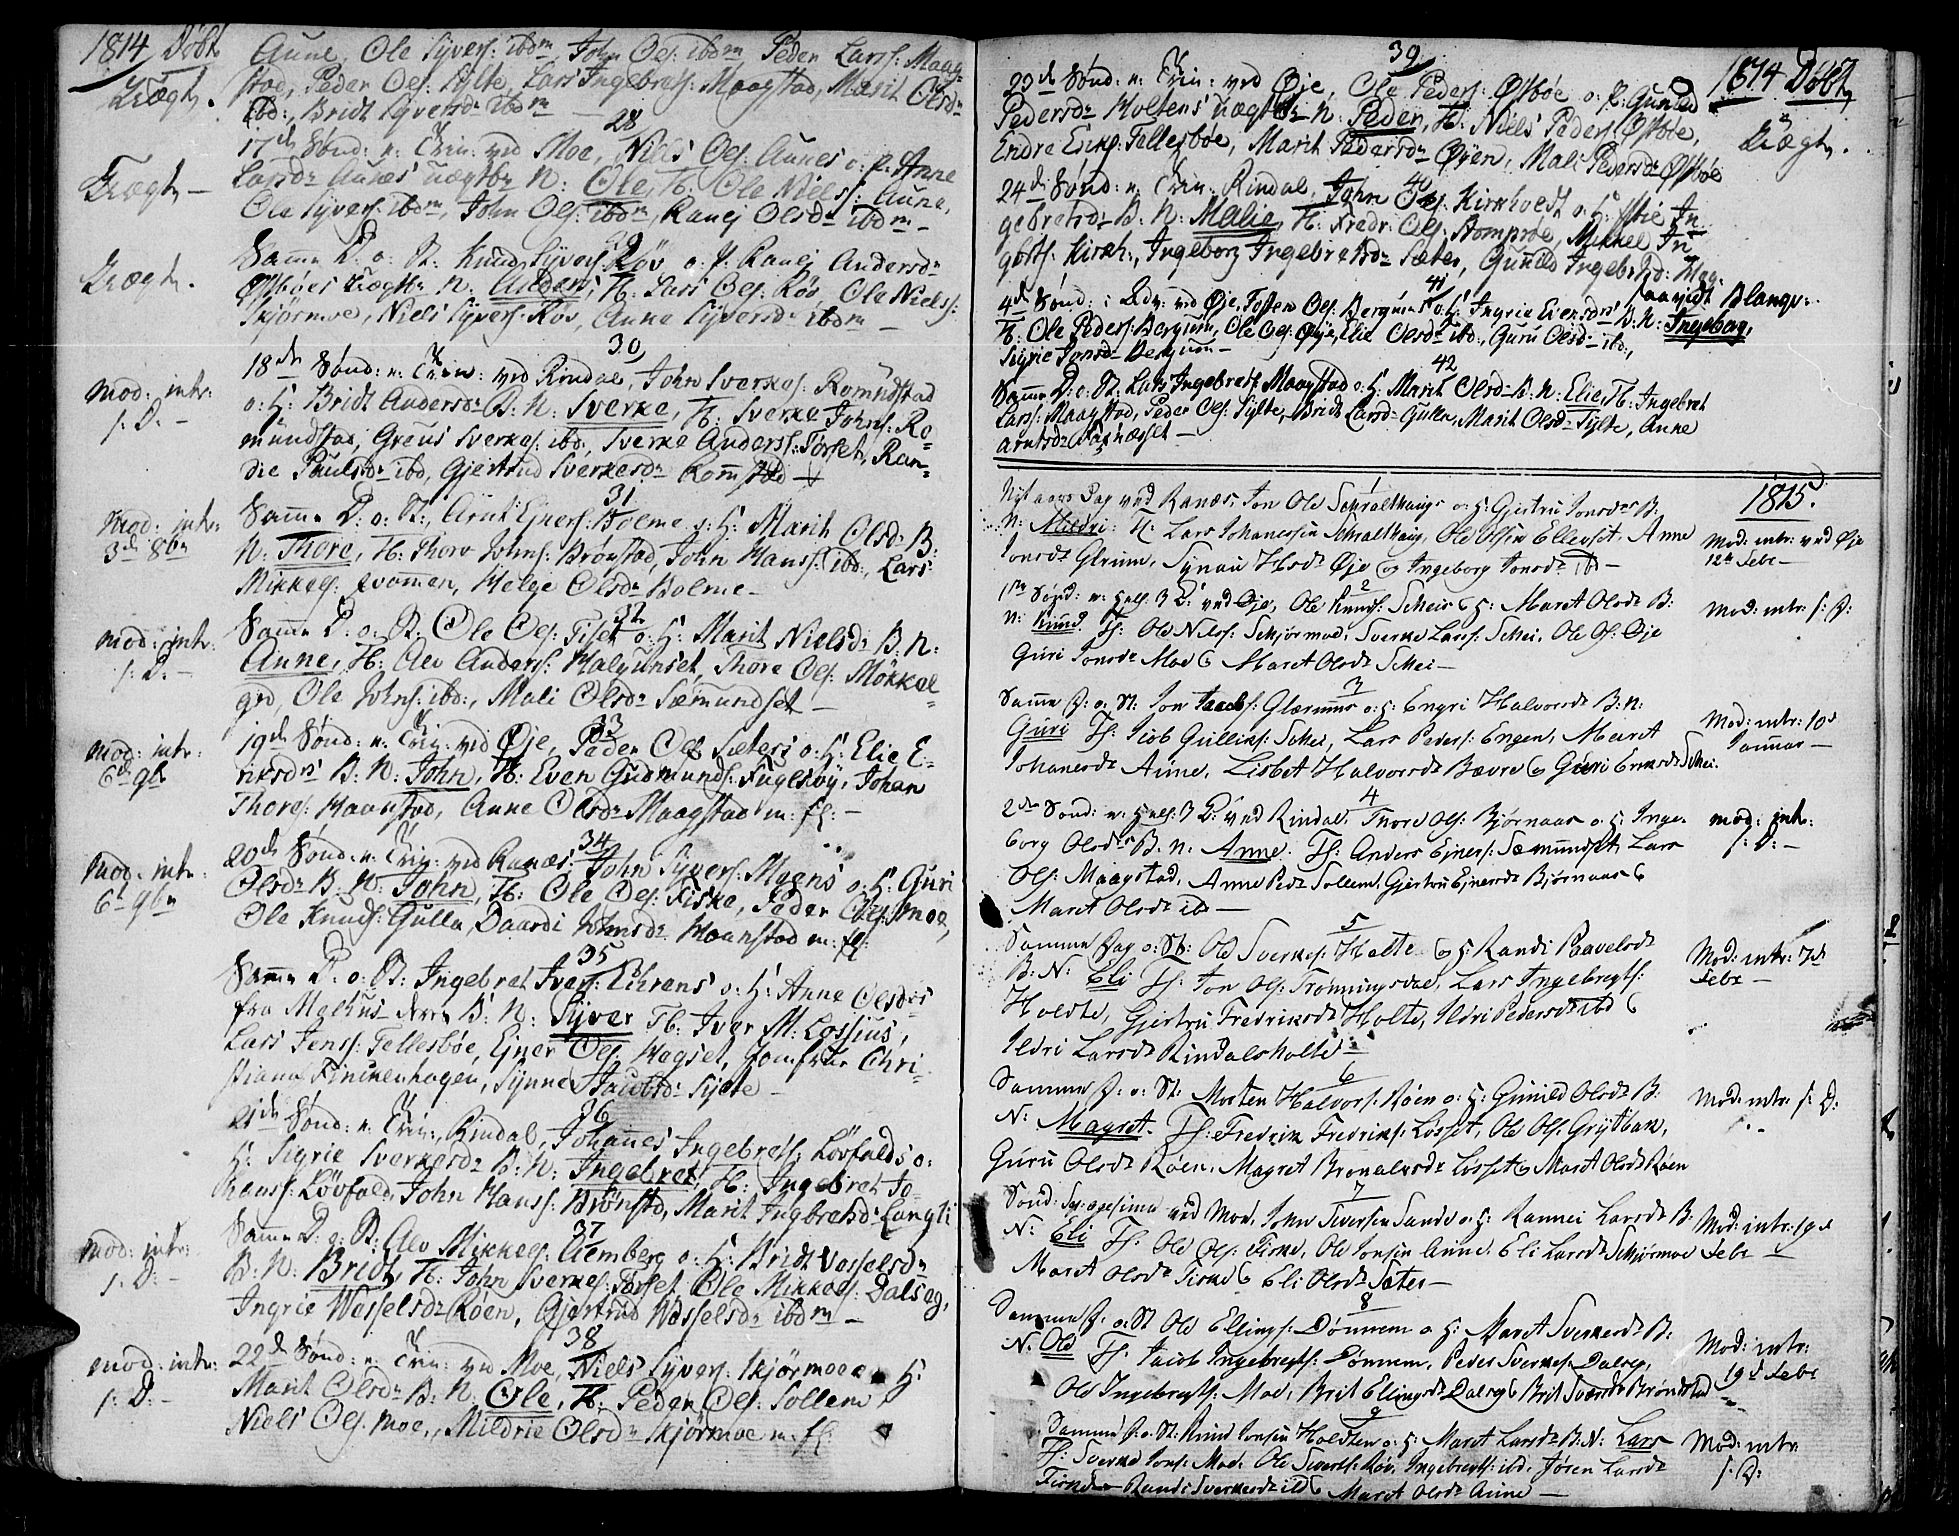 1814 Døbt
Aune, Ole Sÿvers: ibdm John Ols: ibdm Peder Larss: Maag-
stad, Peder Ols: Sylte, Lars Ingebretss: Maagstad, Marit Olsdr
ibd:, Bridt Syversdr ibdm —
Uægte.
28
17de Sønd: n: Trin: ved Moe, Niels Ols: Aunes o: p: Anne
Larsdr Aunes uægtbn N: Ole, Tb: Ole Nielss: Aune,
Ole Syvers: ibdm, John Ols: ibdm, Ranej Olsdr ibdm —
Uægte —
29
Samme D: o: St: Knud Syvers: Röv o: p: Ranej Andersdr
Østbøes Uægtbn N: Anders, Tb: Lars Ols: Röv, Ole Nielss:
Skjörmoe, Niels Syvers: Röv, Anne Syversdr ibdm —
Uægte.
30
18de Sønd: n: Trin: ved Rindal, John Sverkes: Romundstad
o: H: Bridt Andersdr B: N: Sverke, Tb: Sverke Johns: Ro-
mundstad, Greus Sverkes: ibd, Sverke Anderss: Törset, Ran-
die Paulsdr ibd, Gjertrud Sverkesdr Romstad —
mod: intr:
s: D: —
31
Samme D: o: St:, Arnt Ejners: Holme o: H: Marit Olsdr B:
N: Thore, Tb: Thore Johns: Brönstad, John Hanss: ibd:, Lars
Mikkels: Qvammen, Helge Olsdr Bolme —
mod: intr:
3de 8br
32
Samme D: o: St: Ole Ols: Tiset o: H: Marit Nielsdr B: N:
Anne, Tb: Aev Anders: Halgunset, Thore Ols: Mökkel-
grd, Ole Johns: ibd:, Mali Olsdr Sæmundset —
mod: intr:
s: D: —
33
19de Sønd: n: Trin: ved Øje, Peder Ols: Sæters o: H: Elie E-
riksdrs B: N: John, Tb: Even Gudmunds: Fuglsøy, Johan
Thores: Haanstad, Anne Olsdr Maagstad m: fl: —
mod: intr:
6te 9br
34
20de Sønd: n: Trin: ved Ranæs, John Syvers: Moens o: H: Guri
Olsdr B: N: John, Tb: Ole Ols: Fiske, Peder Ols: Moe,
Ole Knuds: Gulla, Daardi Johnsdr Haanstad m: fl:
mod: intr:
6te 9br
35
Samme D: o: St: Ingebret Ivers: Lihrens o: H: Anne Olsdrs
fra Melhus deres B: N: Syver Tb: Iver M: Lossius,
Lars Jenss: Tellesbøe, Ejner Ols: Hagset, Jomfrue Chri-
stiana Finckenhagen, Synne Jacobsdr Sylte —
36
21de Sønd: n: Trin:, Rindal, Johannes Ingebretss: Lövfalds o:
H: Sigrie Sverkesdr B: N: Ingebret, Tb: Ingebret Jo-
hanss: Lövfald, John Hanss: Brönstd, Marit Ingbretsdr Langli
37
Samme D: o: St: Aev Mikkels: Aemberg o: H: Bridt Vesselsdr
B: N: Bridt, Tb: John Sverkes: Törset, Ole Mikkels: Dalseg,
Ingrie Wesselsdr Röen, Gjertrud Wesselsdr ibdm —
mod: intr:
s: D: —
38
22de Sønd: n: Trin: ved Moe, Niels Syvers: Skjörmoe o: H:
Marit Olsdr B: N: Ole, Tb: Peder Ols: Sollem,
Niels Ols: Moe, Mildrie Olsdr Skjörmoe m: fl:
mod: intr:
s: D: —
1814 Døbt
39
23de Sønd: n: Trin: ved Øje, Ole Peders: Østbøe o: p: Gunild
Pedersdr Holtens uægtbn N: Peder, Tb: Niels Peders: Østbøe,
Endre Eriks: Tellesbøe, Marit Pedersdr Øyen, Mali Pedersdr Østbøe
Uægte.
40
24de Sønd: n: Trin: Rindal, John Ols: Kirkholdt o: H: Elie In-
gebretsdr B: N: Malie, Tb: Fredr: Ols: Stomprøe, Mikkel In-
gbrts: Kirkh:, Ingeborg Ingebretsdr Sæter, Gunild Ingebrtsd:
41
4de Sønd: i Adv: ved Øje, Tosten Ols: Bergums o: H: Ingrie Evensdrs B: N: Ingeborg,
Tb: Ole Peders: Bergum, Ole Ols: Øye, Elie Olsdr ibd:, Guru Olsdr ibd:,
Sigrie Jonsdr Bergum —
42
Samme D: o: St: Lars Ingebretss: Maagstad o: H: Marit Olsdr B: N: Elie, Tb: Ingebret
Larss: Maagstad, Peder Ols: Sylte, Bridt Larsdr Gulla, Marit Olsdr Sylte, Anne
Arntsdr Raknesset —
1815.
1
Nyt aars Dag ved Ranæs, Jon Ols Schralthaugs o: H: Gjertru Jonsdrs B:
N: Mildri: Tb: Lars Johanessen Schralthaug, Ole Olsen Ellevset. Anne
Jonsdr Glerum, Synau Hsdr Øje og Ingeborg Jonsdr ibd —
Mod: intr: ved Øje
12te Febr —
2
1ste Sønd: n: H: 3 K: D: ved Øje, Ole Knuds: Scheis o: H: Maret Olsdr B:
N: Knud Tf: Ole Nilss: Schjørmoe, Sverke Larss: Schei, Ole Ols: Øje
Guri Jonsdr Moe og Maret Olsdr Schei —
Mod: intr: s: D:
3
Samme D: o: St: Jon Jacobs: Glærums o: H: Engri Halvorsdr B: N:
Guri Tf: Jacob Gulliks: Schei, Lars Peders: Engen, Maret
Johanesdr Aune, Lisbet Halvorsdr Bævre og Guri Ermsdr Schei.
Mod: intr: 10d
Januar —
4
2den Sønd: n: H: 3 K: D: ved Rindal. Tore Ols: Bjørnaas o: H: Inge-
borg Olsdrs B: N: Anne. Tf: Anders Ejners: Sæmundset, Lars
Ols: Maagstad, Anne Pedr Sollem, Gjertru Ejnersdr Bjørnaas og
Maret Olsdr ibd —
mod: intr:
s: D: —
5
Samme Dag o: St: Ole Sverkes: Holte og H: Randi Paavelsdr
B: N: Eli Tf: Jon Ols: Trønningsdal, Lars Ingebregts:
Holdte, Gjertru Fredriksdr Holte, Ildri Pedersdr ibd og
Ildri Larsdr Rindalsholte —
Mod: intr: 7d
Febr —
6
Samme D: o: St: Morten Halvors: Røen o: H: Gunild Olsdr B:
N: Magret. Tf: Fredrik Fredriks: Løsset, Ole Ols: Grytbak,
Guru Olsdr Røen, Magret Bronaldsdr Løsset og Maret Olsdr Røen
Mod: intr: s: D:
7
Sønd: Sexagesima ved Moe, John Siversen Sande o: H: Rannei Larsdr B:
N: Eli Tf: Ole Ols: Fiske, Ole Jonsen Aune. Eli Larsdr Schjørmoe
Maret Olsdr Fiske og Eli Olsdr Sæter —
Mod: intr: 19d
Febr
8
Samme D: o: St Ole Ellings: Dønnem o: H: Maret Sverkesdr B:
N: Ole Tf: Jacob Ingebregts: Dønnem, Peder Sverkes: Dalseg,
Ole Ingebregts: Moe, Brit Elingsdr Dalseg og Brit Sversdr Brønstad
Mod: intr:
19d Febr
9
Samme D: o: St: Knud Jonsen Holdten o: H: Maret Larsdr B: N: Lars
Tf: Sverke Jons: Moe, Ole Siverts: Røv, Ingebregts: ibd. Jøren Larsdr
Fiske Randi Sverkesdr ibd og Maret Olsdr Aune —
Mod: intr:
s: D: